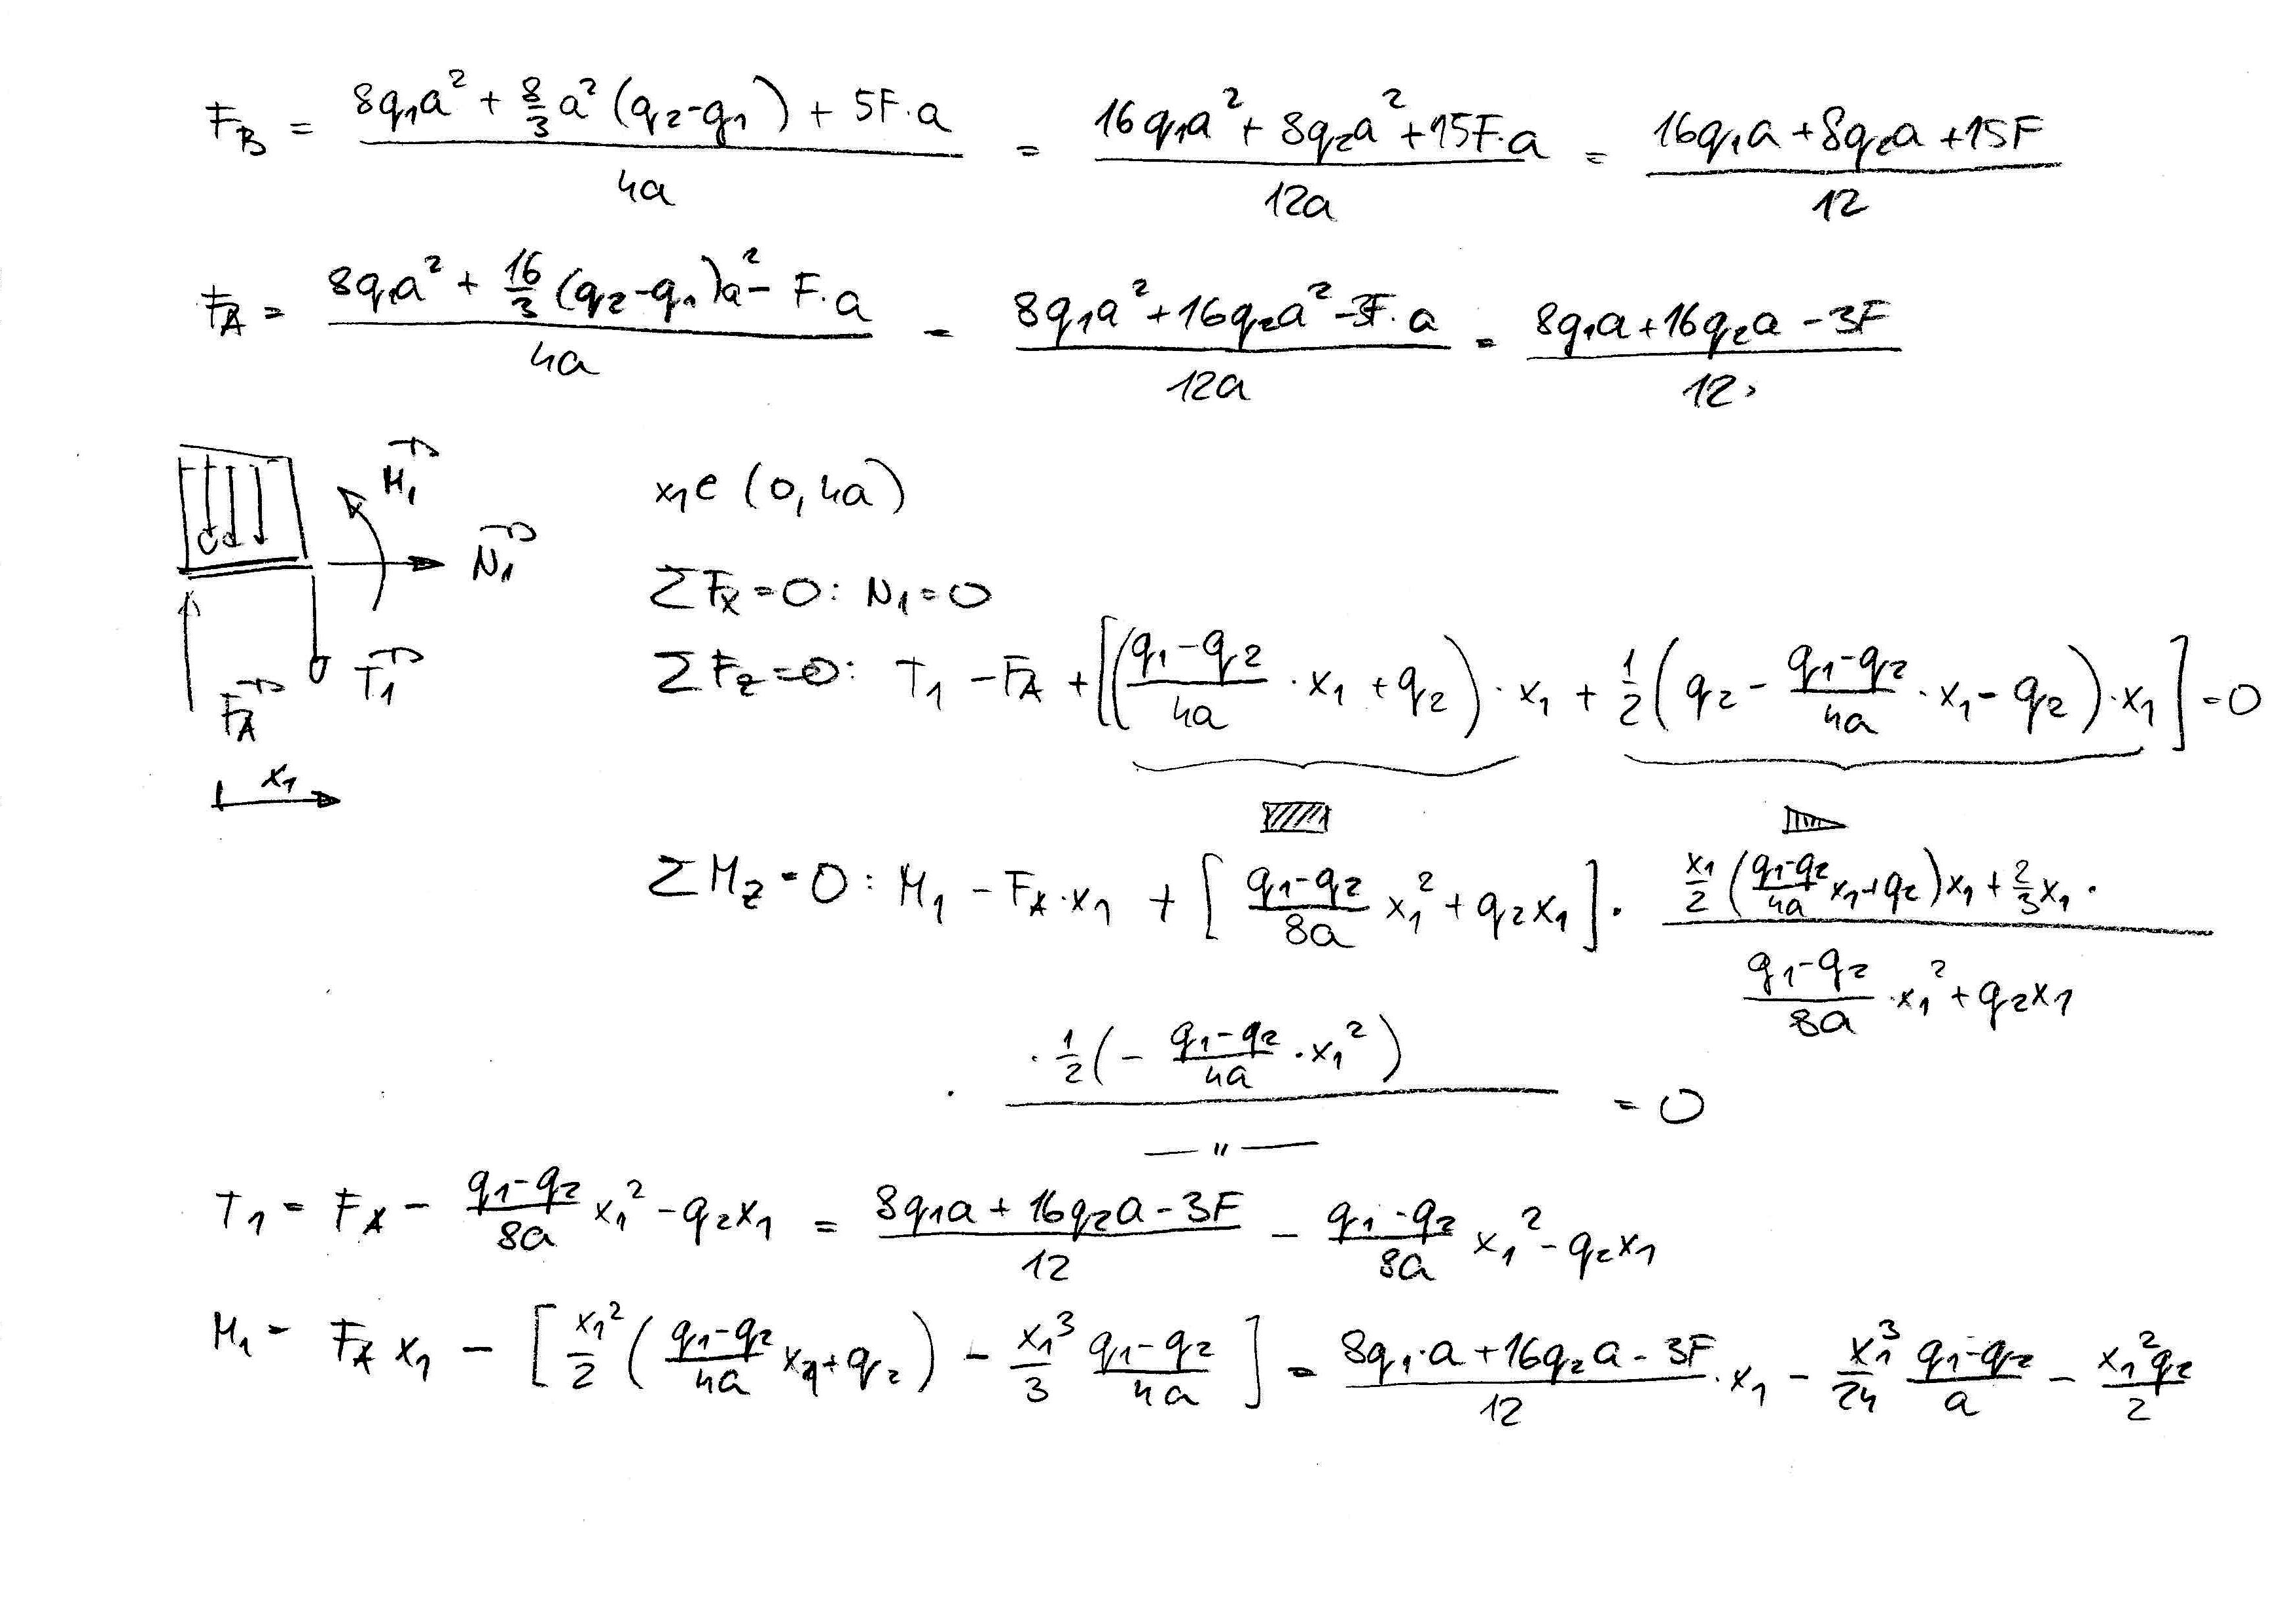 F_B = (8q₁a² + 8/3 a² (q₂-q₁) + 5F·a)/(4a) = (16q₁a² + 8q₂a² + 15F·a)/(12a) = (16q₁a + 8q₂a + 15F)/12
F_A = (8q₁a² + 16/3 (q₂-q₁)a² - F·a)/(4a) = (8q₁a² + 16q₂a² - 3F·a)/(12a) = (8q₁a + 16q₂a - 3F)/12
M₁
N₁
T₁
F_A
x₁
x₁ ∈ (0, 4a)
ΣFx = 0: N₁ = 0
ΣFz = 0: T₁ - F_A + [((q₁-q₂)/(4a) · x₁ + q₂) · x₁ + 1/2 (q₂ - (q₁-q₂)/(4a) · x₁ - q₂) · x₁] = 0
ΣMz = 0: M₁ - F_A·x₁ + [(q₁-q₂)/(8a) x₁² + q₂x₁] · (x₁/2 ((q₁-q₂)/(4a) x₁ + q₂)x₁ + 2/3 x₁ ·)/((q₁-q₂)/(8a) · x₁² + q₂x₁)
· (· 1/2 (- (q₁-q₂)/(4a) · x₁²))/(—〃—) = 0
T₁ = F_A - (q₁-q₂)/(8a) x₁² - q₂x₁ = (8q₁a + 16q₂a - 3F)/12 - (q₁-q₂)/(8a) x₁² - q₂x₁
M₁ = F_A x₁ - [x₁²/2 ((q₁-q₂)/(4a) x₁ + q₂) - x₁³/3 (q₁-q₂)/(4a)] = (8q₁·a + 16q₂a - 3F)/12 · x₁ - x₁³/24 (q₁-q₂)/a - x₁²q₂/2